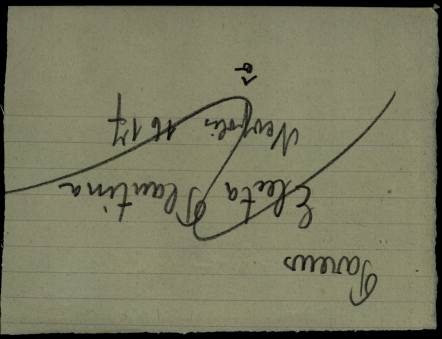 Pareus
Electa Plautina
Neapolis 1617